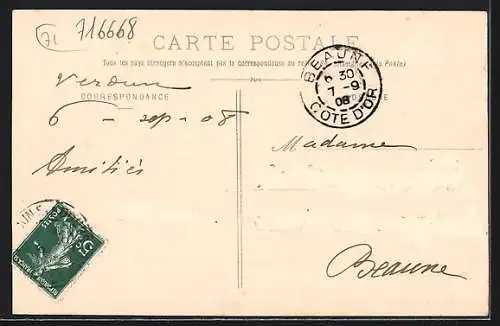 71
716668
CARTE POSTALE
Tous les pays étrangers n'acceptent pas la correspondance au
Verdun
CORRESPONDANCE
6 - sep - 08
Amitiés
BEAUNE
6 30
7 - 9
08
COTE D'OR
Madame
Beaune
5c
POSTES